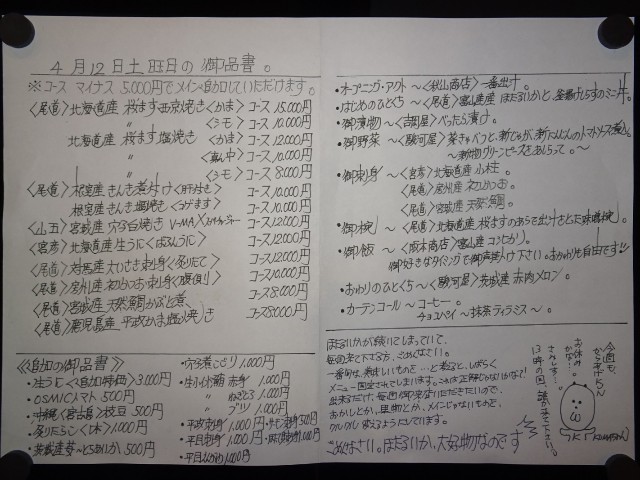 4月12日土曜日の御品書。
※コース マイナス5.000円でメイン追加していただけます。
〈尾道〉北海道産 桜ます西京焼き〈かま〉コース15.000円
〃 〈シモ〉コース10.000円
北海道産 桜ます塩焼き〈かま〉コース12.000円
〈真ん中〉コース10.000円
〃 〈シモ〉コース8.000円
〈尾道〉根室産きんき煮付け〈肝付き〉コース10.000円
根室産きんき塩焼き〈コゲます〉コース10.000円
〈山五〉宮城産 穴子白焼き V-MAX コース12.000円
〈宮彦〉北海道産生うに〈ばふんうに〉コース12.000円
〈尾道〉対馬産 大いさき刺身〈炙りたて〉コース12.000円
〈尾道〉房州産 初かつお刺身〈腹側〉コース10.000円
〈尾道〉宮城産 天然鯛かぶと煮。コース8.000円
〈尾道〉鹿児島産 平政かま塩焼き コース8.000円
《追加の御品書》
・生うに〈追加特価〉3.000円
・OSMICトマト 500円
・沖縄〈宮古島〉枝豆 500円
・炙りたらこ〈1本〉1.000円
・茨城産苺〜とちあいか 500円
・穴子煮こごり 1.000円
・生本鮪 赤身 1.000円
〃 ねぎとろ 1.000円
〃 ブツ 1.000円
・平政刺身 1.000円
・平目刺身 1.000円
・平目えんがわ 1.000円
・オープニング・アクト 〜〈秋山商店〉一番出汁。
・はじめのひとくち 〜〈尾道〉富山産 ほたるいかと、釜揚げしらすのミニ丼。
・御漬物 〜〈吉岡屋〉べったら漬け。
・御野菜 〜〈駿河屋〉茶きゃべつと、新じゃが、新にんじんのトマトソース煮込
〜新物グリーンピースをあしらって。〜
・御刺身 〜〈宮彦〉北海道産 小柱。
〈尾道〉房州産 初かつお。
〈尾道〉宮城産 天然鯛。
・御椀 〜〈尾道〉北海道産 桜ますのあらで出汁をとた味噌椀。
・御飯 〜〈阪本商店〉富山産 コシヒカリ。
御好きなタイミングで御声掛け下さい。おかわりも自由です!!
・おわりのひとくち 〜〈駿河屋〉茨城産 赤肉メロン。
・カーテンコール 〜コーヒー。
チョコパイ 〜抹茶ティラミス〜。
ほたるいかが続いてしまっていて、
毎回来て下さる方、ごめんなさい。
一番旬は、美味しいものを…と考えると、しばらく
メニュー固定されてしまいます。これは正解じゃないかなで?
出来るだけ、毎回御来店いただきたいので、
おかしとか、果物とか、メインじゃないものを、
クルクル変えるようにしています。
ごめんなさい。ほたるいか、大好物なのです
今週も、
がんばたもん
お休み
かな…
さみしす…
13時の回、